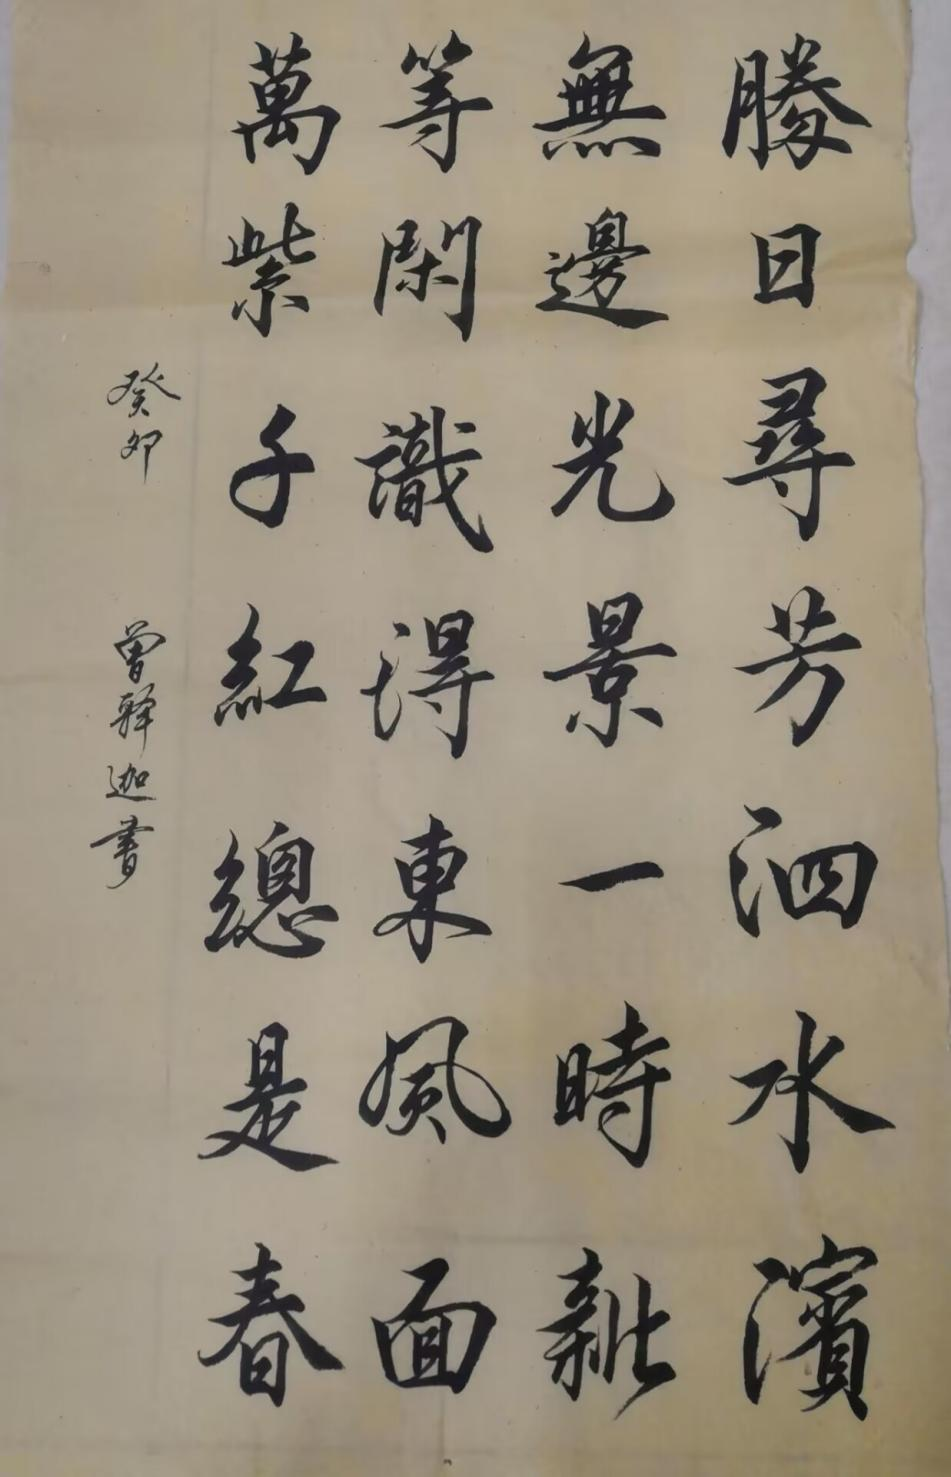 勝日尋芳泗水濱
無邊光景一時新
等閑識得東風面
萬紫千紅總是春
癸卯 曾釋迦書